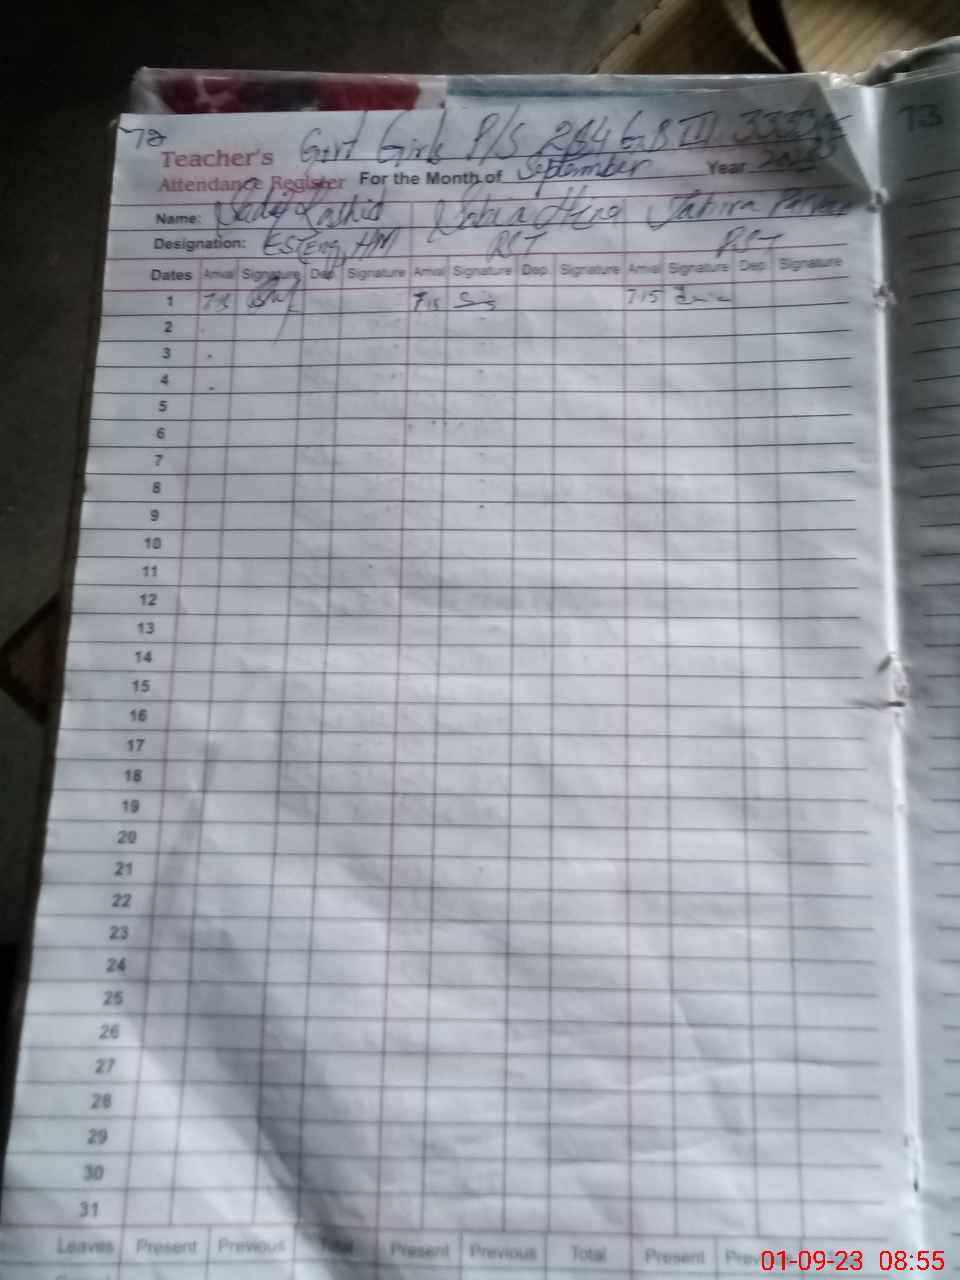 72 Govt Girls P/S 264 G.B III 73
Teacher's
Attendance Register For the Month of September Year
Name: Rashid Sabia Tahira
Designation: EST Eng, HM PST P.S.T
Dates Arrival Signature Dep. Signature Arrival Signature Dep. Signature Arrival Signature Dep. Signature
1 7.15 7.15 7.15
2
3
4
5
6
7
8
9
10
11
12
13
14
15
16
17
18
19
20
21
22
23
24
25
26
27
28
29
30
31
Leaves Present Previous Total Present Previous Total Present Previous
01-09-23 08:55